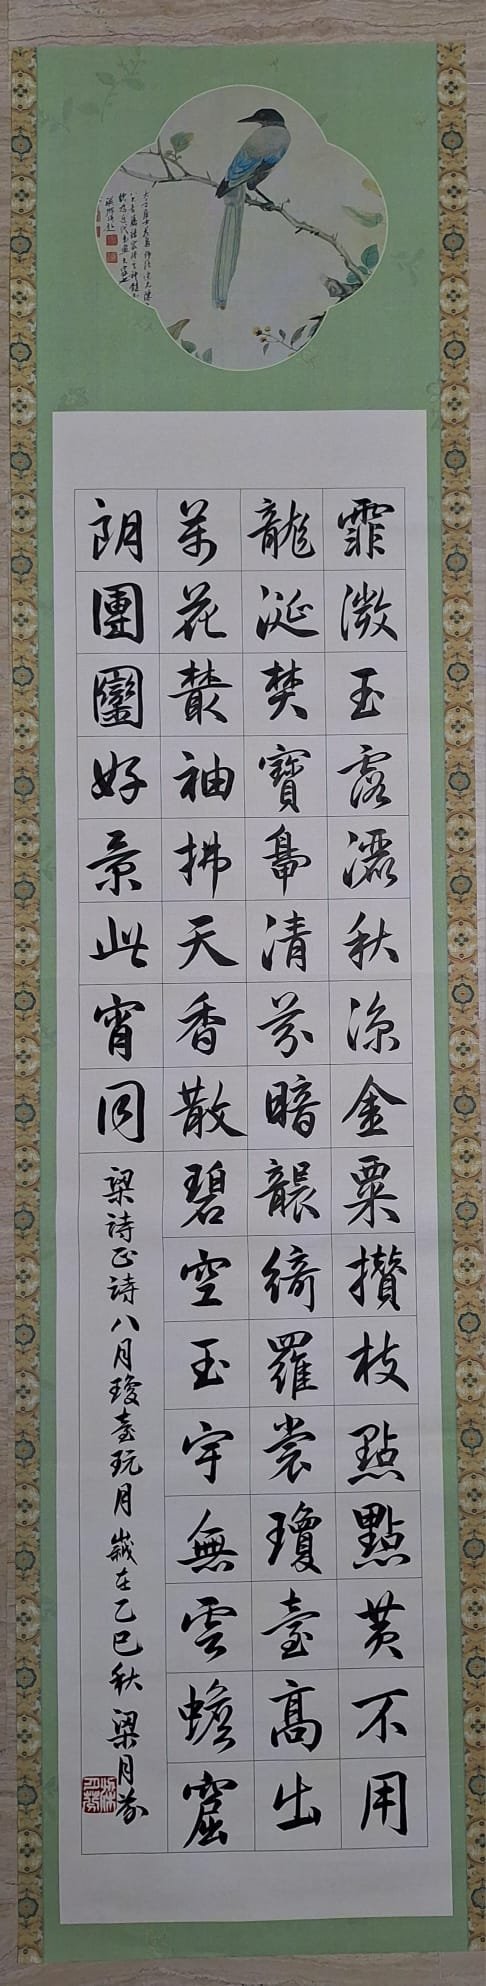 霏溦玉露灑秋涼金粟攢枝點點黃不用
龍涎焚寶鴨清芬暗襲綺羅裳瓊臺高出
萬花叢袖拂天香散碧空玉宇無雲蟾窟
朗團圞好景此宵同
梁詩正詩八月瓊臺玩月 歲在乙巳秋 梁月芬